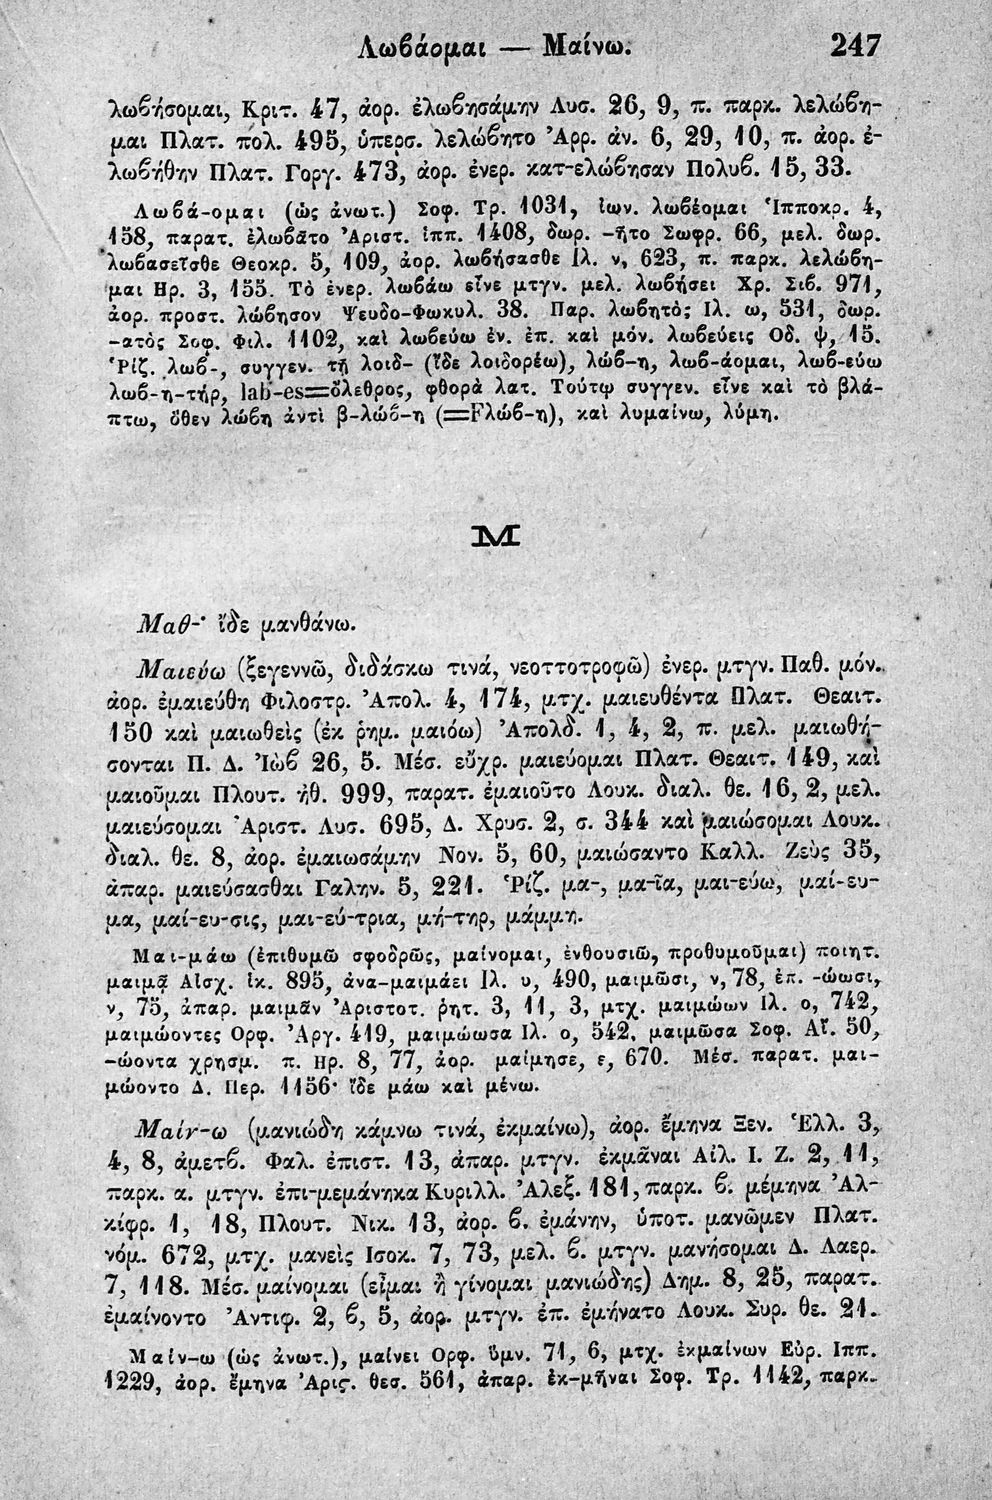 Λωβάομαι — Μαίνω. 247
λωβήσομαι, Κριτ. 47, ἀορ. ἐλωβησάμην Λυσ. 26, 9, π. παρκ. λελώβη-
μαι Πλατ. πολ. 495, ὑπερσ. λελώβητο Ἀρρ. ἀν. 6, 29, 10, π. ἀορ. ἐ-
λωβήθην Πλατ. Γοργ. 473, ἀορ. ἐνερ. κατ-ελώβησαν Πολυβ. 15, 33.
Λωβά-ομαι (ὡς ἀνωτ.) Σοφ. Τρ. 1031, ἰων. λωβέομαι Ἱπποκρ. 4,
158, παρατ. ἐλωβᾶτο Ἀριστ. ἱππ. 1408, δωρ. -ῆτο Σωφρ. 66, μελ. δωρ.
λωβασεῖσθε Θεοκρ. 5, 109, ἀορ. λωβήσασθε Ιλ. ν, 623, π. παρκ. λελώβη-
μαι Ηρ. 3, 155. Τὸ ἐνερ. λωβάω εἶνε μτγν. μελ. λωβήσει Χρ. Σιβ. 971,
ἀορ. προστ. λώβησον Ψευδο-Φωκυλ. 38. Παρ. λωβητὸς Ιλ. ω, 531, δωρ.
-ατὸς Σοφ. Φιλ. 1102, καὶ λωβεύω ἐν. ἐπ. καὶ μόν. λωβεύεις Οδ. ψ, 15.
Ῥίζ. λωβ-, συγγεν. τῇ λοιδ- (ἴδε λοιδορέω), λώβ-η, λωβ-άομαι, λωβ-εύω
λωβ-η-τήρ, lab-es=ὄλεθρος, φθορὰ λατ. Τούτῳ συγγεν. εἶνε καὶ τὸ βλά-
πτω, ὅθεν λώβη ἀντὶ β-λώβ-η (=Fλώβ-η), καὶ λυμαίνω, λύμη.
Μ
Μαθ-· ἴδε μανθάνω.
Μαιεύω (ξεγεννῶ, διδάσκω τινά, νεοττοτροφῶ) ἐνερ. μτγν. Παθ. μόν.
ἀορ. ἐμαιεύθη Φιλοστρ. Ἀπολ. 4, 174, μτχ. μαιευθέντα Πλατ. Θεαιτ.
150 καὶ μαιωθεὶς (ἐκ ῥημ. μαιόω) Ἀπολδ. 1, 4, 2, π. μελ. μαιωθή-
σονται Π. Δ. Ἰὼβ 26, 5. Μέσ. εὔχρ. μαιεύομαι Πλατ. Θεαιτ. 149, καὶ
μαιοῦμαι Πλουτ. ἠθ. 999, παρατ. ἐμαιοῦτο Λουκ. διαλ. θε. 16, 2, μελ.
μαιεύσομαι Ἀριστ. Λυσ. 695, Δ. Χρυσ. 2, σ. 344 καὶ μαιώσομαι Λουκ.
διαλ. θε. 8, ἀορ. ἐμαιωσάμην Νον. 5, 60, μαιώσαντο Καλλ. Ζεὺς 35,
ἀπαρ. μαιεύσασθαι Γαλην. 5, 221. Ῥίζ. μα-, μα-ῖα, μαι-εύω, μαί-ευ-
μα, μαί-ευ-σις, μαι-εύ-τρια, μή-τηρ, μάμμη.
Μαι-μάω (ἐπιθυμῶ σφοδρῶς, μαίνομαι, ἐνθουσιῶ, προθυμοῦμαι) ποιητ.
μαιμᾷ Αἰσχ. ἱκ. 895, ἀνα-μαιμάει Ιλ. υ, 490, μαιμῶσι, ν, 78, ἐπ. -ώωσι,
ν, 75, ἀπαρ. μαιμᾶν Ἀριστοτ. ῥητ. 3, 11, 3, μτχ. μαιμώων Ιλ. ο, 742,
μαιμώοντες Ορφ. Ἀργ. 419, μαιμώωσα Ιλ. ο, 542, μαιμῶσα Σοφ. Αἴ. 50,
-ώοντα χρησμ. π. Ηρ. 8, 77, ἀορ. μαίμησε, ε, 670. Μέσ. παρατ. μαι-
μώοντο Δ. Περ. 1156· ἴδε μάω καὶ μένω.
Μαίν-ω (μανιώδη κάμνω τινά, ἐκμαίνω), ἀορ. ἔμηνα Ξεν. Ἑλλ. 3,
4, 8, ἀμετβ. Φαλ. ἐπιστ. 13, ἀπαρ. μτγν. ἐκμᾶναι Αἰλ. Ι. Ζ. 2, 11,
παρκ. α. μτγν. ἐπι-μεμάνηκα Κυριλλ. Ἀλεξ. 181, παρκ. β. μέμηνα Ἀλ-
κίφρ. 1, 18, Πλουτ. Νικ. 13, ἀορ. β. ἐμάνην, ὑποτ. μανῶμεν Πλατ.
νόμ. 672, μτχ. μανεὶς Ισοκ. 7, 73, μελ. β. μτγν. μανήσομαι Δ. Λαερ.
7, 118. Μέσ. μαίνομαι (εἶμαι ἢ γίνομαι μανιώδης) Δημ. 8, 25, παρατ.
ἐμαίνοντο Ἀντιφ. 2, β, 5, ἀορ. μτγν. ἐπ. ἐμήνατο Λουκ. Συρ. θε. 21.
Μαίν-ω (ὡς ἀνωτ.), μαίνει Ορφ. ὕμν. 71, 6, μτχ. ἐκμαίνων Εὐρ. Ιππ.
1229, ἀορ. ἔμηνα Ἀρις. θεσ. 561, ἀπαρ. ἐκ-μῆναι Σοφ. Τρ. 1142, παρκ.